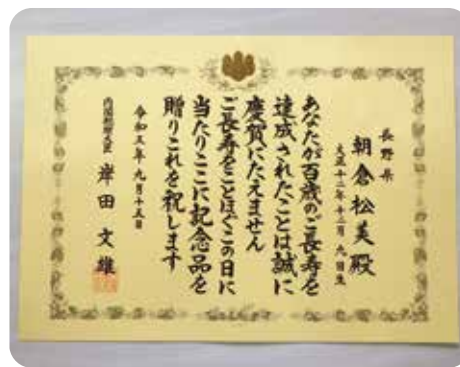 長野県
朝倉松美殿
大正十二年十二月九日生
あなたが百歳のご長寿を
達成されたことは誠に
慶賀にたえません
ご長寿をことほぐこの日に
当たりここに記念品を
贈りこれを祝します
令和五年九月十五日
内閣総理大臣 岸田文雄